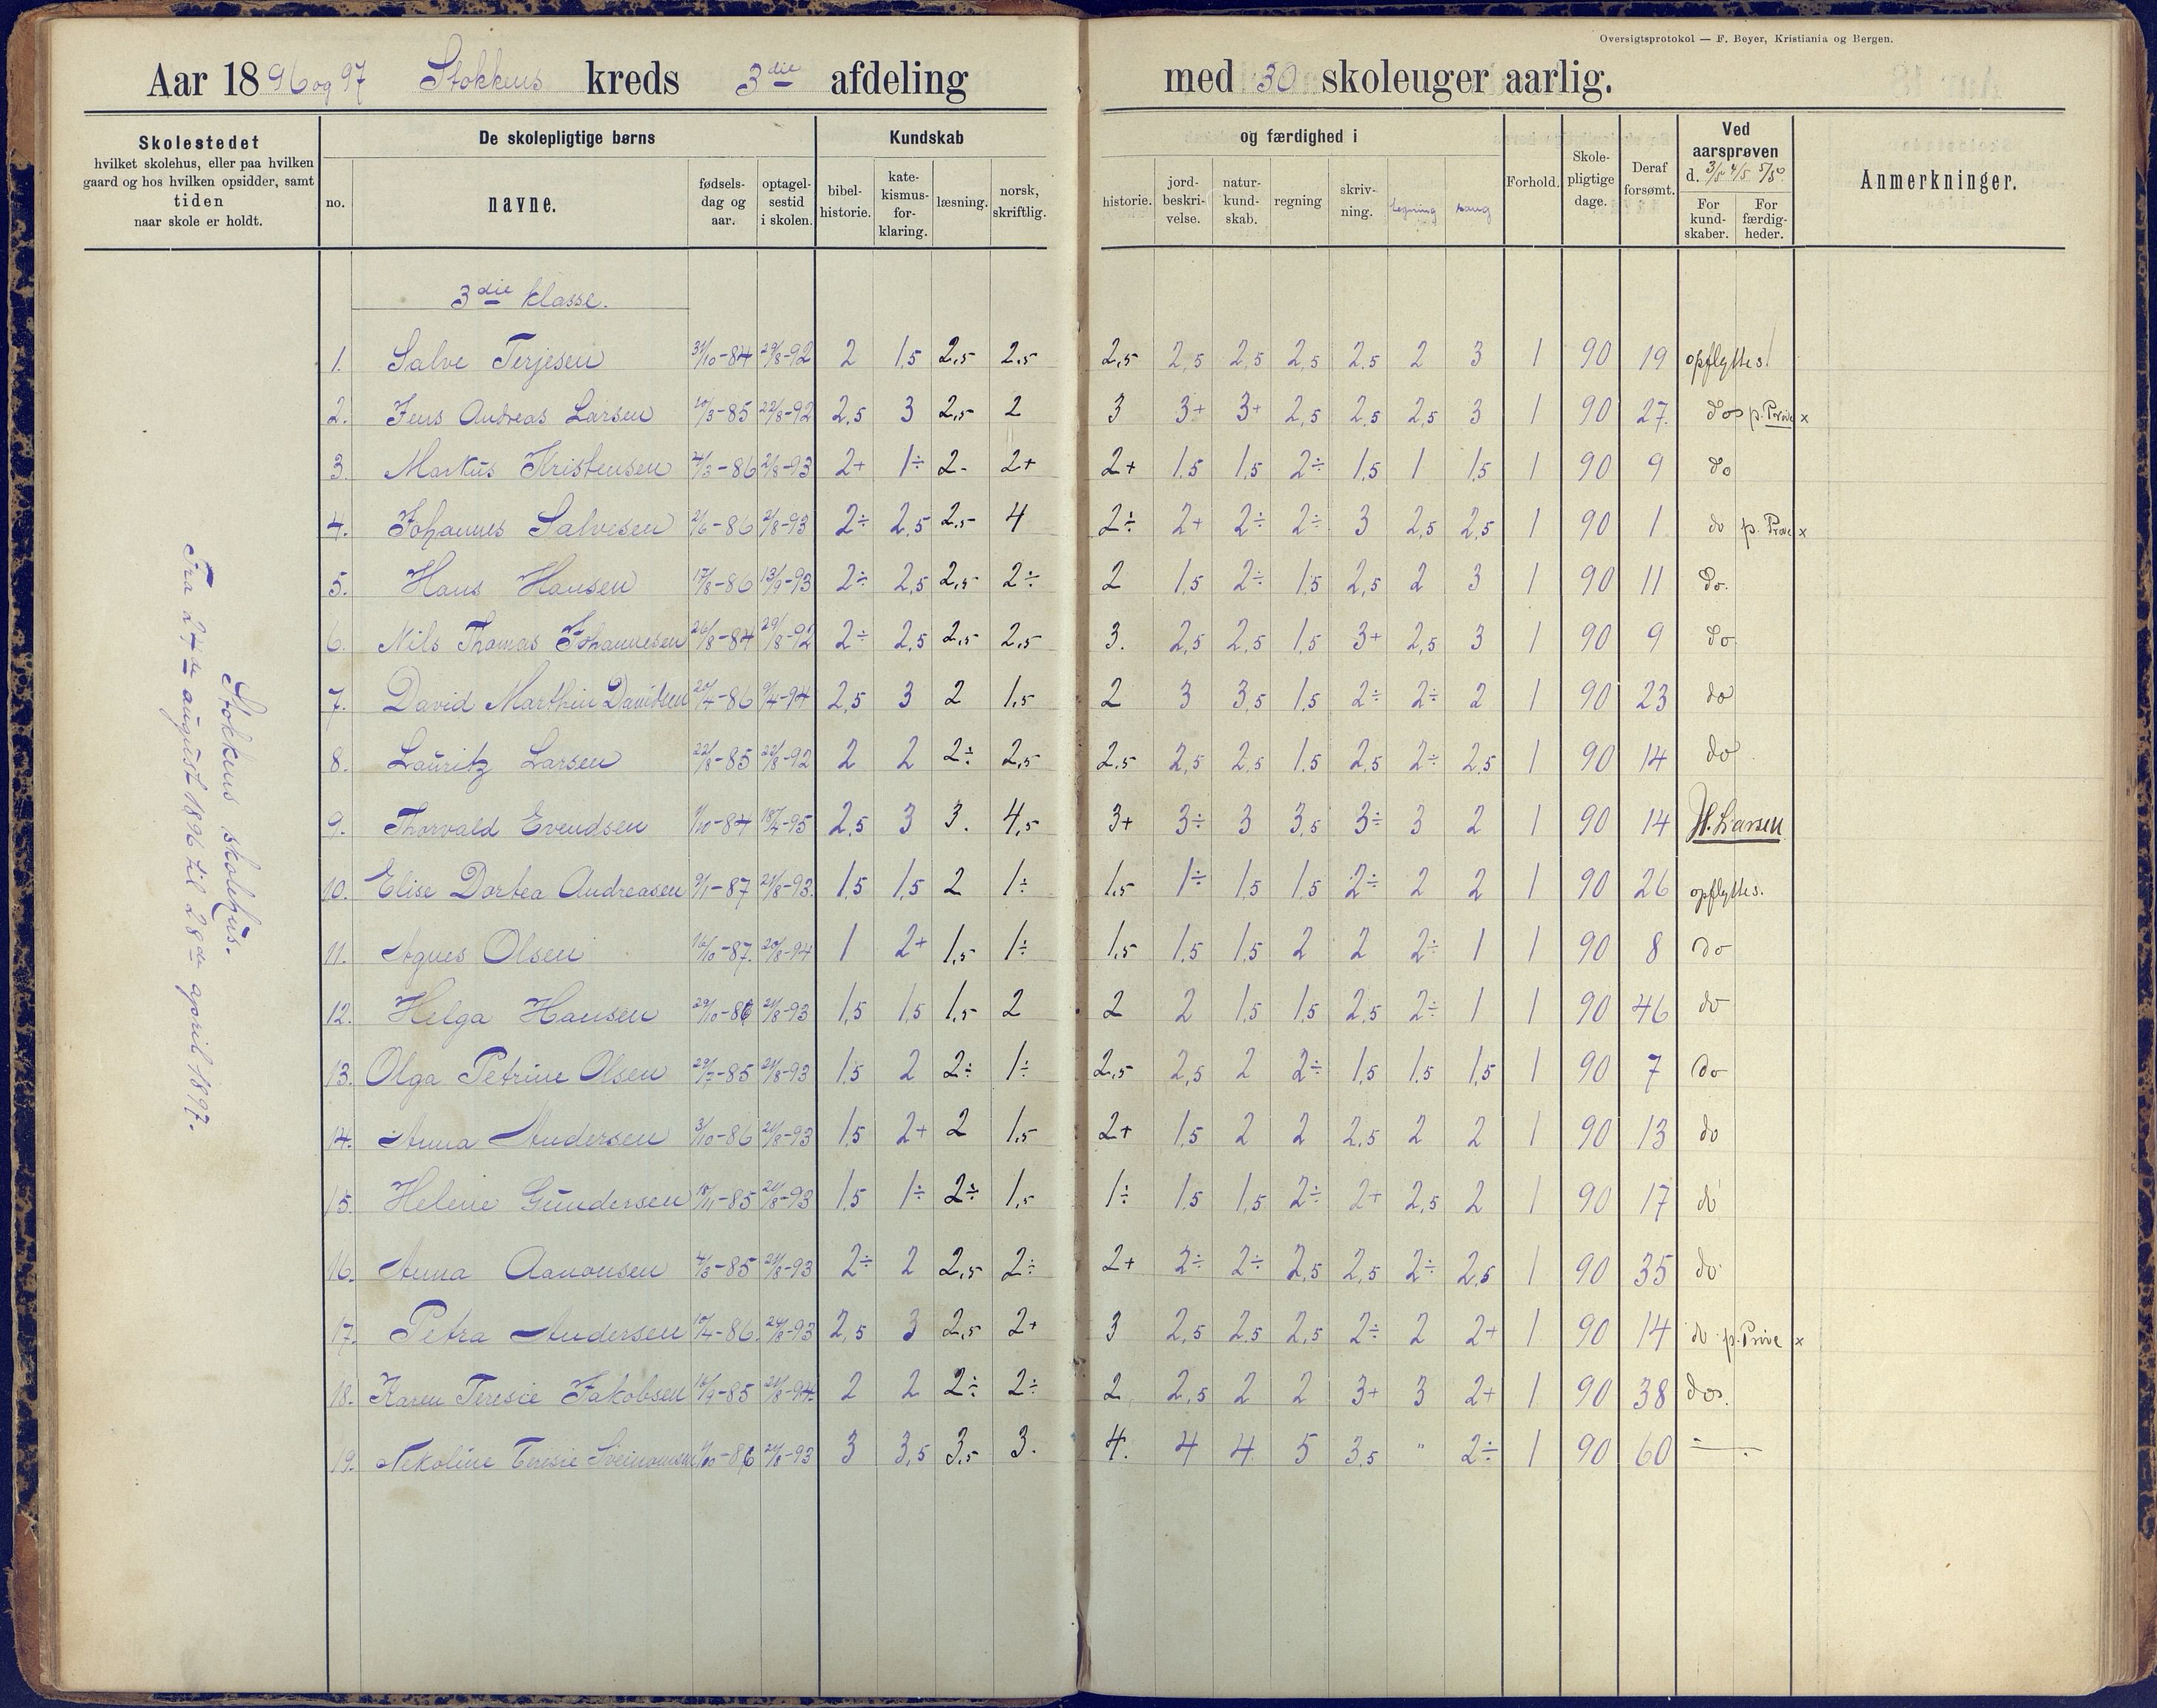 Oversigtsprotokol — F. Beyer, Kristiania og Bergen.
Aar 1896 og 97 Stokkens kreds 3die afdeling med 30 skoleuger aarlig.
Skolestedet hvilket skolehus, eller paa hvilken gaard og hos hvilken opsidder, samt tiden naar skole er holdt.
De skolepligtige børns
no. navne. fødsels-dag og aar. optagel-sestid i skolen.
Kundskab og færdighed i
bibel-historie. kate-kismus-for-klaring. læsning. norsk, skriftlig. historie. jord-beskri-velse. natur-kund-skab. regning skriv-ning. tegning sang
Forhold. Skole-pligtige dage. Deraf forsømt.
Ved aarsprøven d. 3/5 4/5 5/5
For kund-skaber. For færdig-heder.
Anmerkninger.
Stokkens skolehus.
Fra 24de august 1896 til 28de april 1897.
3die klasse.
1. Salve Terjesen 31/10-84 29/8-92 2 1,5 2,5 2,5 2,5 2,5 2,5 2,5 2,5 2 3 1 90 19 opflyttes!
2. Jens Andreas Larsen 10/3-85 22/8-92 2,5 3 2,5 2 3 3+ 3+ 2,5 2,5 2,5 3 1 90 27. do p. Prøve x
3. Markus Kristensen 4/3-86 21/8-93 2+ 1÷ 2- 2+ 2+ 1,5 1,5 2÷ 1,5 1 1,5 1 90 9 do
4. Johannes Salvesen 2/6-86 21/8-93 2÷ 2,5 2,5 4 2÷ 2+ 2÷ 2÷ 3 2,5 2,5 1 90 1 do p. Prøve x
5. Hans Hansen 17/8-86 13/9-93 2÷ 2,5 2,5 2÷ 2 1,5 2÷ 1,5 2,5 2 3 1 90 11 do.
6. Nils Thomas Johannesen 26/8-84 29/8-92 2÷ 2,5 2,5 2,5 3. 2,5 2,5 1,5 3+ 2,5 3 1 90 9 do
7. David Marthin Davidsen 20/4-86 9/4-94 2,5 3 2 1,5 2 3 3,5 1,5 2÷ 2÷ 2 1 90 23 do
8. Lauritz Larsen 22/8-85 22/8-92 2 2 2÷ 2,5 2,5 2,5 2,5 1,5 2,5 2÷ 2,5 1 90 14 do
9. Thorvald Evendsen 1/10-84 18/4-95 2,5 3 3. 4,5 3+ 3÷ 3 3,5 3÷ 3 2 1 90 14 H. Larsen
10. Elise Dortea Andreasen 9/1-87 21/8-93. 1,5 1,5 2 1÷ 1,5 1÷ 1,5 1,5 2÷ 2 2 1 90 26 opflyttes.
11. Agnes Olsen 16/10-87. 20/8-94 1 2+ 1,5 1÷ 1,5 1,5 1,5 2 2 2÷ 1 1 90 8 do
12. Helga Hansen 29/10-86 21/8-93 1,5 1,5 1,5 2 2 2 1,5 1,5 2,5 2÷ 1 1 90 46 do
13. Olga Petrine Olsen 29/7-85 21/8-93 1,5 2 2÷ 1÷ 2,5 2,5 2 2÷ 1,5 1,5 1,5 1 90 7 do
14. Anna Andersen 3/10-86 21/8-93 1,5 2+ 2 1,5 2+ 1,5 2 2 2,5 2 2 1 90 13 do
15. Helene Gundersen 18/11-85 21/8-93 1,5 1÷ 2÷ 1,5 1÷ 1,5 1,5 2÷ 2+ 2,5 2 1 90 17 do
16. Anna Aanonsen 4/3-85 21/8-93 2÷ 2 2,5 2÷ 2+ 2÷ 2÷ 2,5 2,5 2÷ 2,5 1 90 35 do
17. Petra Andersen 10/4-86. 24/8-93 2,5 3 2,5 2+ 3 2,5 2,5 2,5 2÷ 2 2+ 1 90 14 do p. Prøve x
18. Karen Teresie Jakobsen 10/9-85 21/8-94. 2 2 2÷ 2÷ 2 2,5 2 2 3+ 3 2+ 1 90 38 do.
19. Nekoline Teresie 1/10-86 21/8-93 3 3,5 3,5 3. 4. 4 4 5 3,5 " 2÷ 1 90 60 —